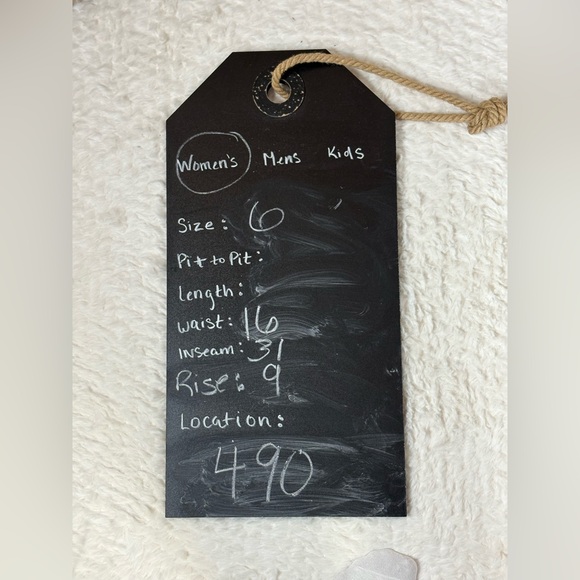 Women's Mens Kids
Size: 6
Pit to Pit:
Length:
Waist: 16
Inseam: 31
Rise: 9
Location:
490